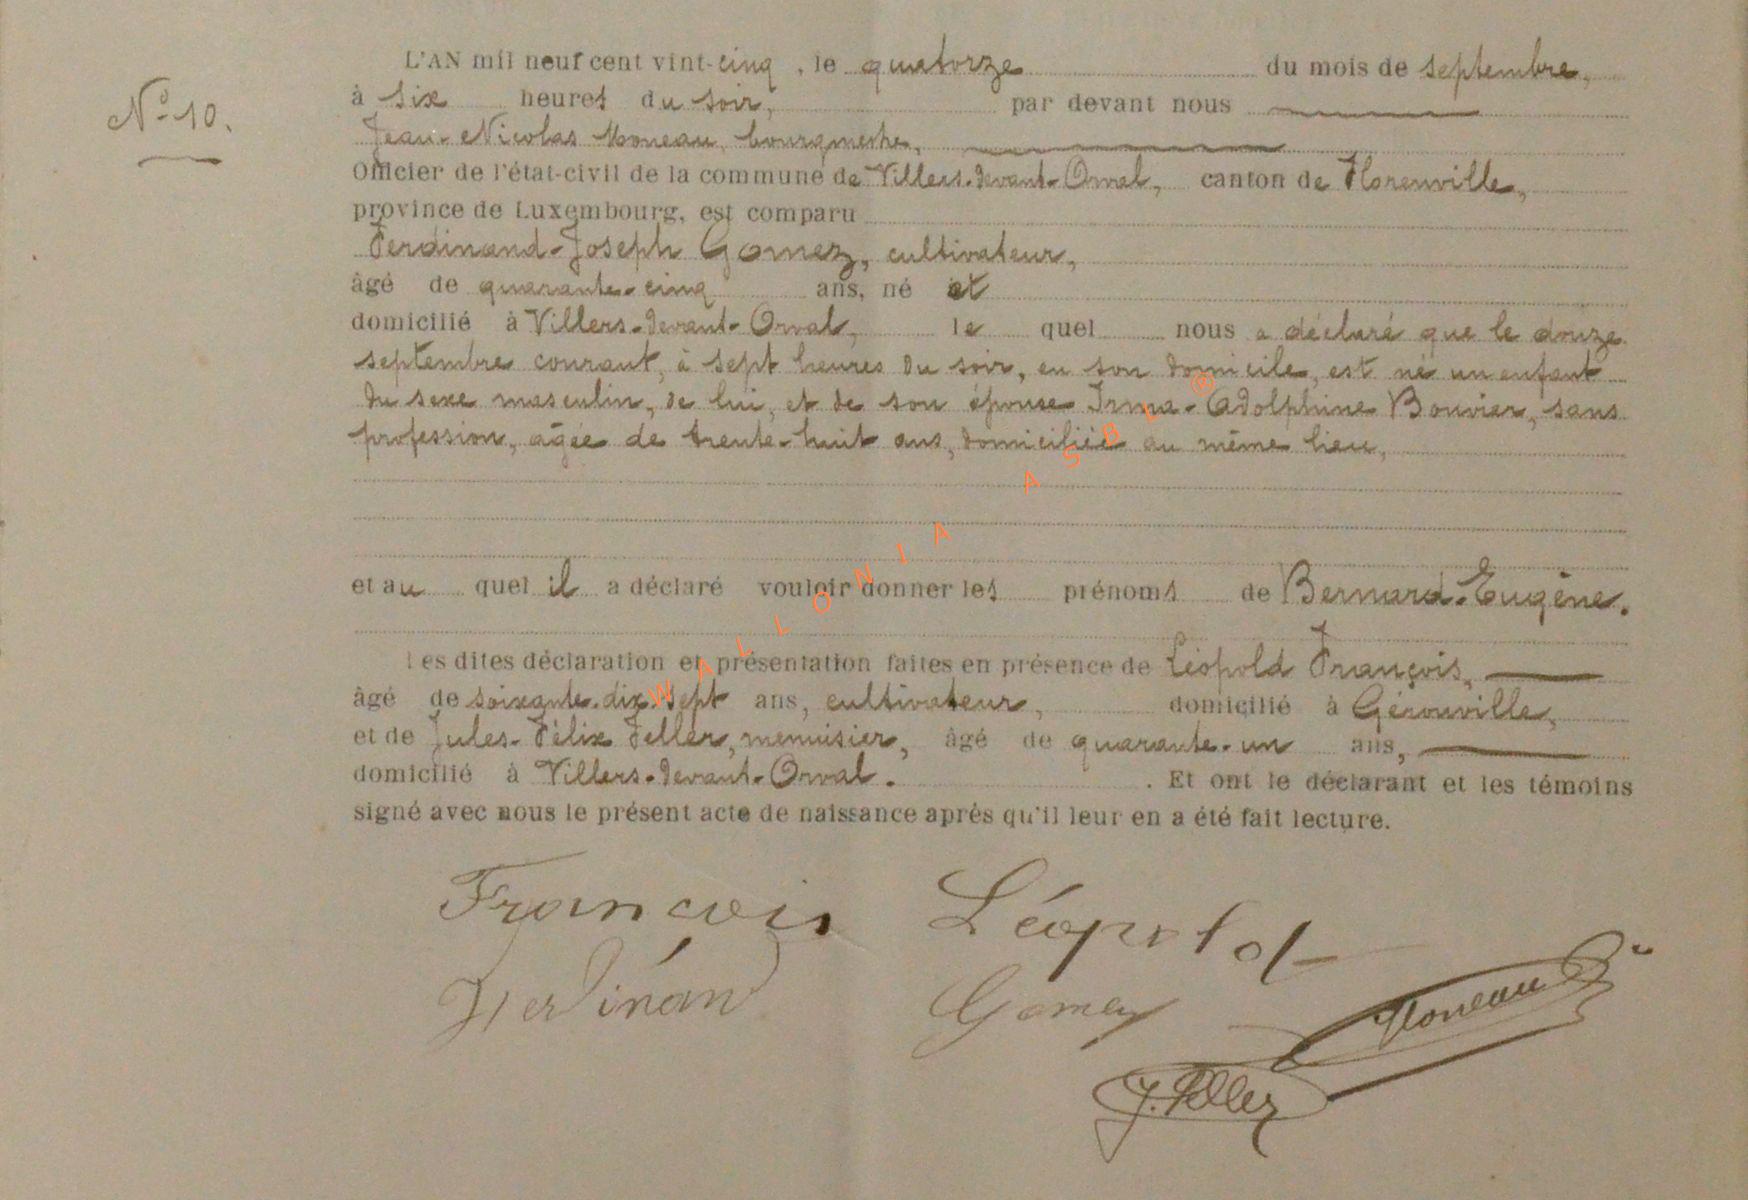 N° 10.
L'AN mil neuf cent vint-cinq, le quatorze du mois de septembre,
à six heures du soir, par devant nous
Jean-Nicolas Moneau, bourgmestre,
Officier de l'état-civil de la commune de Villers-devant-Orval, canton de Florenville,
province de Luxembourg, est comparu
Ferdinand-Joseph Gomez, cultivateur,
âgé de quarante-cinq ans, né et
domicilié à Villers-devant-Orval, le quel nous a déclaré que le douze
septembre courant, à sept heures du soir, en son domicile, est né un enfant
du sexe masculin, de lui, et de son épouse Irma-Adolphine Bouvier, sans
profession, agée de trente-huit ans, domiciliée au même lieu,
et au quel il a déclaré vouloir donner les prénoms de Bernard-Eugène.
Les dites déclaration et présentation faites en présence de Léopold François,
âgé de soixante-dix-sept ans, cultivateur, domicilié à Gérouville,
et de Jules-Félix Feller, menuisier, âgé de quarante-un ans,
domicilié à Villers-devant-Orval. . Et ont le déclarant et les témoins
signé avec nous le présent acte de naissance après qu'il leur en a été fait lecture.
François Léopold
Ferdinand Gomez
Moneau
J. Feller
WALLONIA ASBL ®